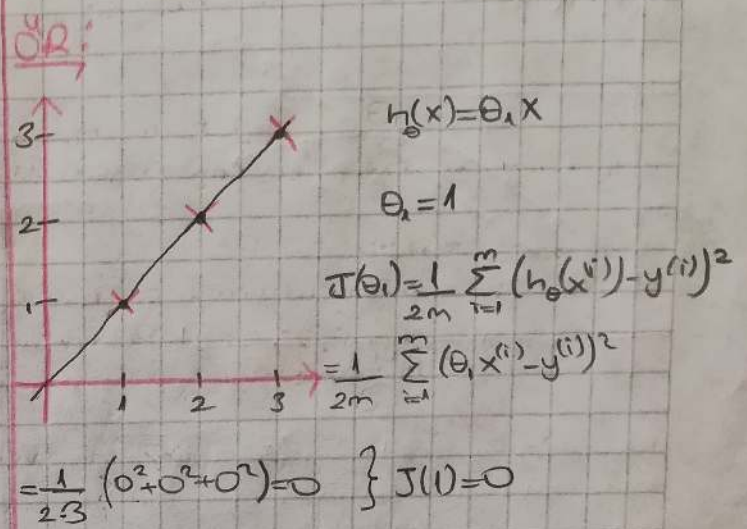 ÖR:
3
2
1
1 2 3
h_θ(x)=θ₁x
θ₁=1
J(θ₁)=1/2m Σ_{i=1}^{m} (h_θ(x⁽ⁱ⁾)-y⁽ⁱ⁾)²
=1/2m Σ_{i=1}^{m} (θ₁x⁽ⁱ⁾-y⁽ⁱ⁾)²
=1/2.3 (0²+0²+0²)=0 } J(1)=0